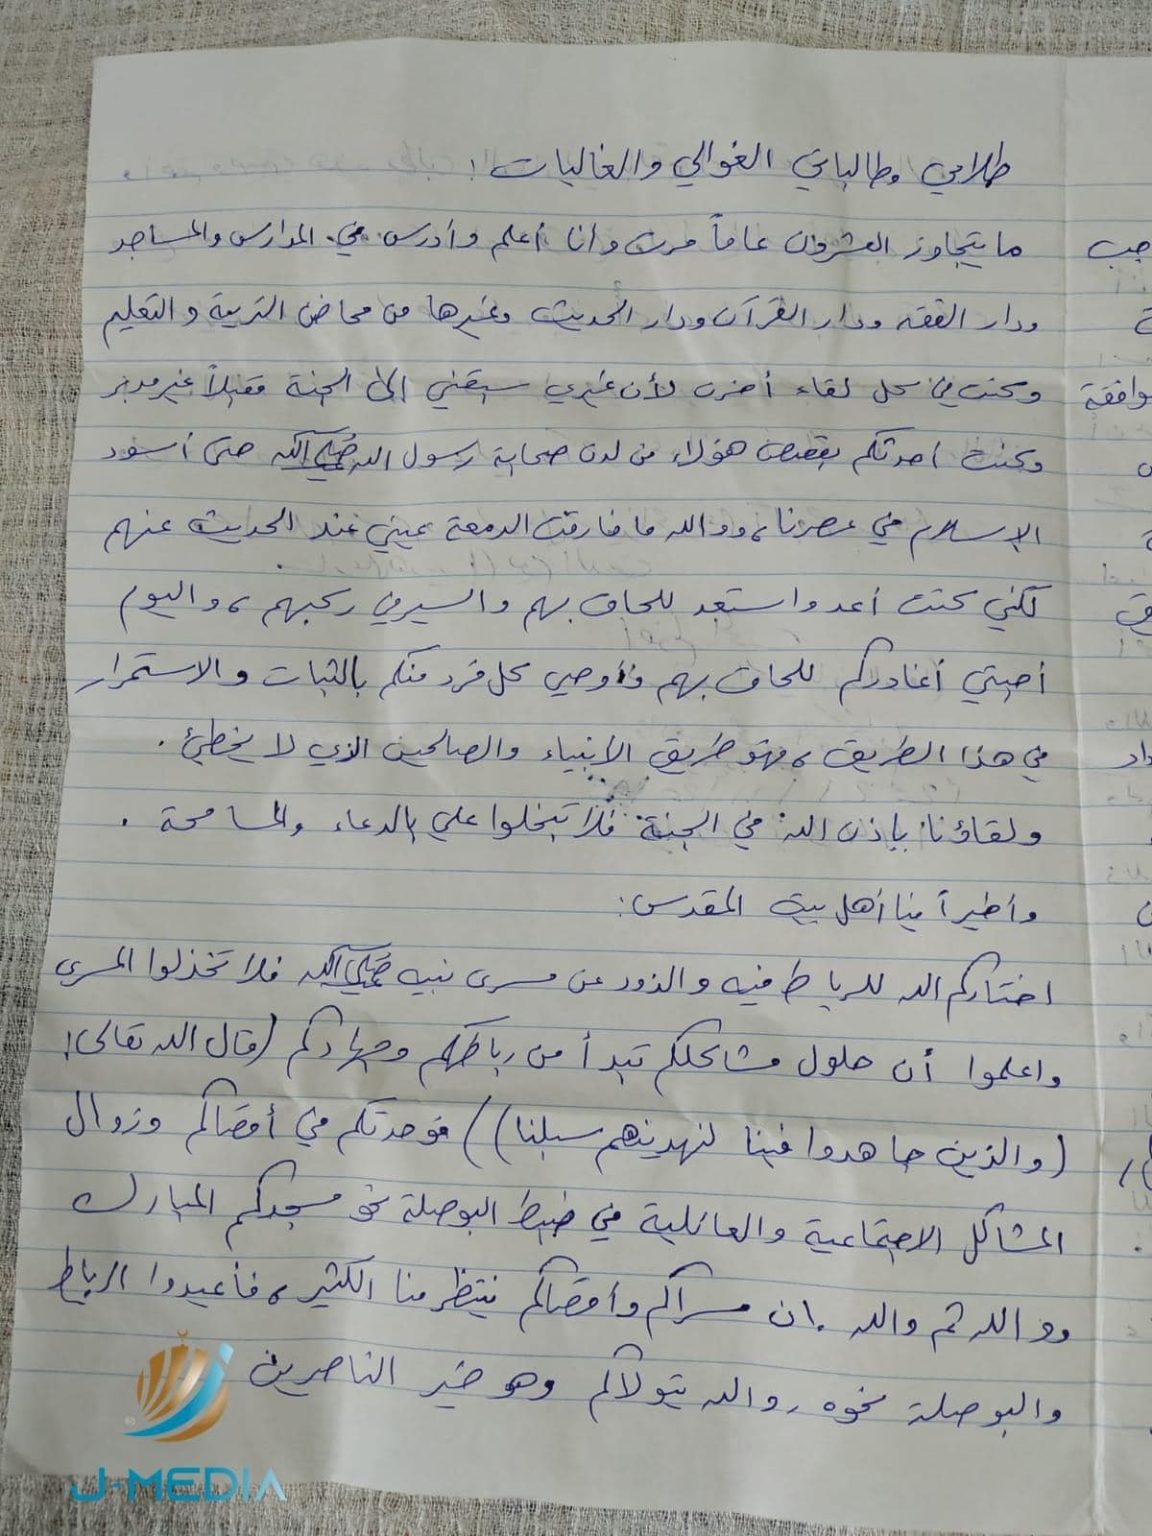 طلابي وطالباتي الغوالي والغاليات!
ما يتجاوز العشرون عاماً مرت وأنا أعلم وأدرس في المدارس والمساجد
ودار الفقه ودار القرآن ودار الحديث وغيرها من محاضن التربية والتعليم
وكنت في كل لقاء أحزن لأن غيري سبقني إلى الجنة مقبلاً غير مدبر
وكنت أحدثكم بقصص هؤلاء من لدن صحابة رسول الله ﷺ حتى أسود
الإسلام في عصرنا، ووالله ما فارقت الدمعة عيني عند الحديث عنهم
لكني كنت أعد واستعد للحاق بهم والسير في ركبهم، واليوم
أحبتي أغادركم للحاق بهم فأوصي كل فرد منكم بالثبات والاستمرار
في هذا الطريق، فهو طريق الأنبياء والصالحين الذي لا يخطئ.
ولقاؤنا بإذن الله في الجنة فلا تبخلوا علي بالدعاء والمسامحة.
وأخيراً يا أهل بيت المقدس:
اختاركم الله للرباط فيه والذود عن مسرى نبيه ﷺ فلا تخذلوا المسرى
واعلموا أن حلول مشاكلكم تبدأ من رباطكم وجهادكم (قال الله تعالى:
(والذين جاهدوا فينا لنهدينهم سبلنا)) فوحدتكم في أقصاكم وزوال
المشاكل الاجتماعية والعائلية في ضبط البوصلة نحو مسجدكم المبارك
ووالله ثم والله إن مسراكم وأقصاكم ينتظر منا الكثير، فأعيدوا الرباط
والبوصلة نحوه، والله يتولاكم وهو خير الناصرين
J-MEDIA